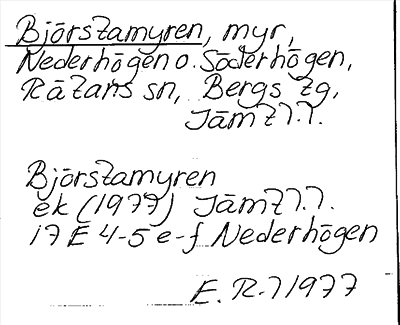 Björstamyren, myr,
Nederhögen o. Söderhögen,
Rätans sn, Bergs tg,
Jämtl.
Björstamyren
ek (1977) Jämtl.
17 E 4-5 e-f Nederhögen
E. R-l 1977